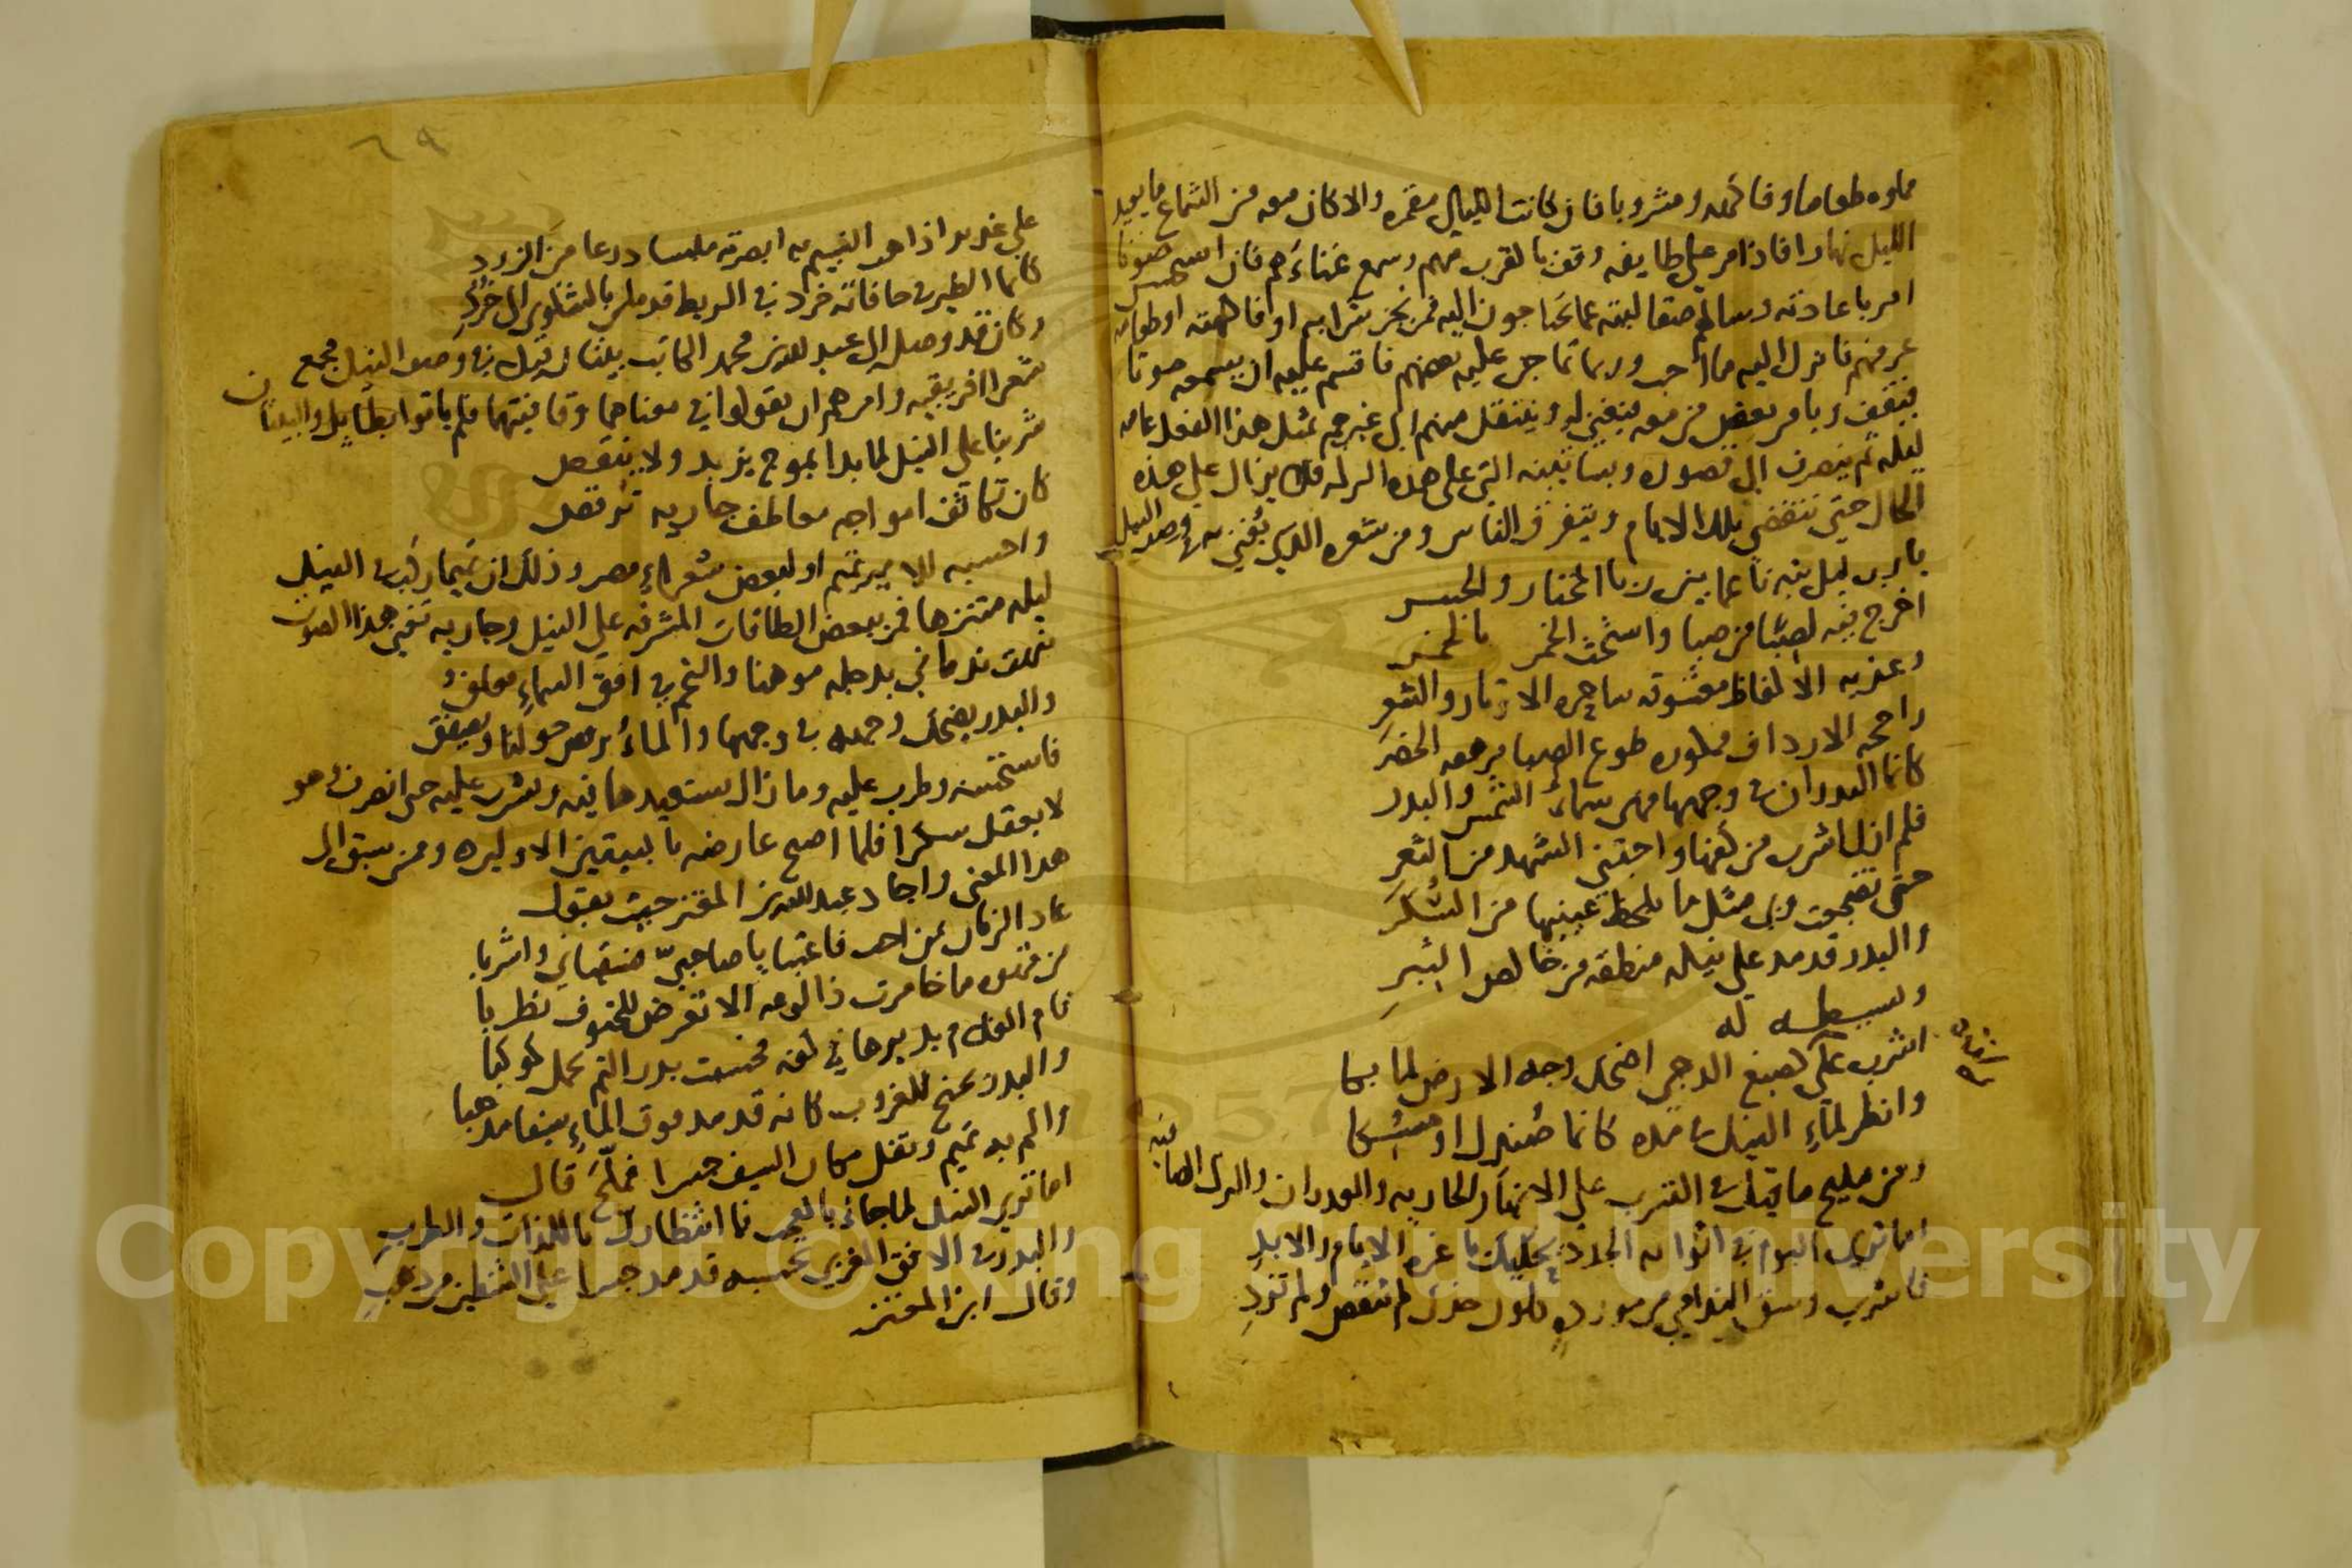 مملوه طعاما وفاكهه ومشروبا فان كانت الليالي مقمره والا كان معه من الشماع ما يعيد
الليل نهارا فاذا مر على طايفه وقف بالقرب منهم وسمع غناءهم فان استحسن صوتا
امر باعادته وسالهم عما يحتاجون اليه فمن شرابه او فاكهته او طعامه
فانزل اليه ما احب وربما عليه بعضهم فاقسم عليه ان يسمعه صوتا
فيقف ويامر بعض من معه فيغني له وينتقل منهم الى غيرهم بمثل هذا الفعل عامه
ليله ثم ينصرف الى قصوره وبساتينه التي على هذه البركه فلا يزال على هذه
الحال حتى تنقضي تلك الايام ويتفرق الناس ومن شعره الذي يغني به في وصف النيل
يا رب ليل بته ناعما بين المختار والجسر
اخرج فيه لصبا من صبا واستحث الخمر بالخمر
وعذبه الالفاظ معشوقه ساحره الاوتار والشعر
راجحه الارداف ممكوره طوع الصبا مرهفه الخصر
كانما البدران في وجهها فهي سماء الشمس والبدر
فلم ازل اشرب من كفها واجتني الشهد من الثغر
حتى تضجعت وبي مثل ما بلحظ عينيها من السكر
والبدر قد مد على نيله منطقه من خالص التبر
وله
اشرب على صبغ الدجى اضحك وجه الارض لما بكا
وانظر لماء النيل في مده كانما صندل او مسكا
ومن مليح ما قيل في الشرب على الانهار الجاريه والغدران والبرك الصافيه
اما ترى اليوم في اثوابه الجدد يحكيك يا غره الايام والابد
فاشرب وسق الندامى من مورده كلون خدك لم تنقص ولم تزد
٦٩
على غدير اذا هب النسيم به ابصرته ملبسا درعا من الزرد
كانما الطير في حافاته خرد في الربط قد ملن بالشكوى الى خرد
وكان قد وصل الى عبد الله بن محمد الكاتب بيتان قيل في وصف النيل فجمع
شعرا افريقيه وامرهم ان يقولوا في معناهما وقافيتهما فلم ياتوا بطايل والبيتان
شربنا على النيل لما بدا بموج يزيد ولا ينقص
كان تكاثف امواجه معاطف جاريه ترقص
واحسبه للامير تميم او لبعض شعراء مصر وذلك ان تميما ركب في النيل
ليله متنزها فمر ببعض الطاقات المشرفه على النيل وجاريه تغني هذا الصوت
نبهت ندماني بدجله موهنا والنجم في افق السماء معلق
والبدر يضحك وجهه في وجهها والماء يرقص حولنا ويصفق
فاستحسنه وطرب عليه وما زال يستعيدها فيه ويشرب عليه حتى انصرف وهو
لا يعقل سكرا فلما اصبح عارضه بالبيتين الاوليره ومن سبق الى
هذا المعنى واجاد عبد الله بن المعتز حيث يقول
عاد الزمان بمن احب فاعتبا يا صاحبي فسقياني واشربا
من قهوه ما خامرت ذا لوعه الا تعرض للحتوف تطربا
قام الغلام يديرها في كفه فحسبت بدر التم يحمل كوكبا
والبدر يجنح للغروب كانه قد مد فوق الماء سيفا مذهبا
والم به تميم ونقل مكان السيف جسرا فملح قال
اما ترى النيل لما جاء بالعجب ما انتظارك باللذات والطرب
والبدر في الافق الغربي تحسبه قد مد جسرا على الشطين من ذهب
وقال ابن المعتز
Copyright © King Saud University
1957